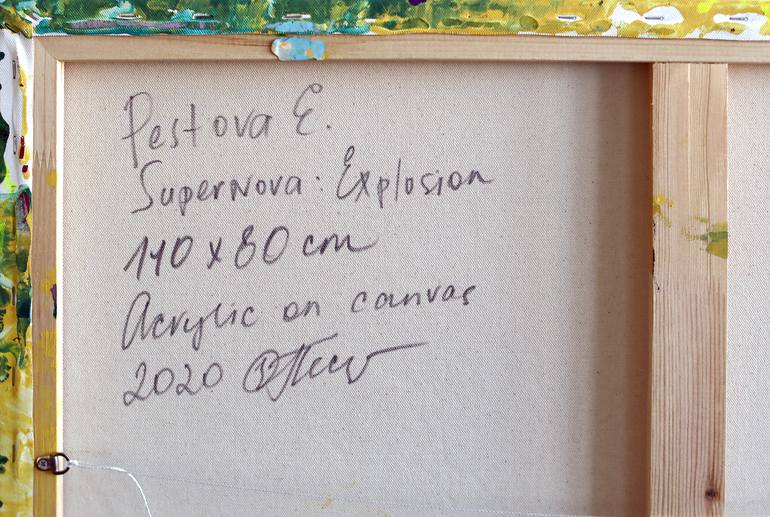 Pestova E.
Supernova: Explosion
140 x 80 cm
Acrylic on canvas
2020